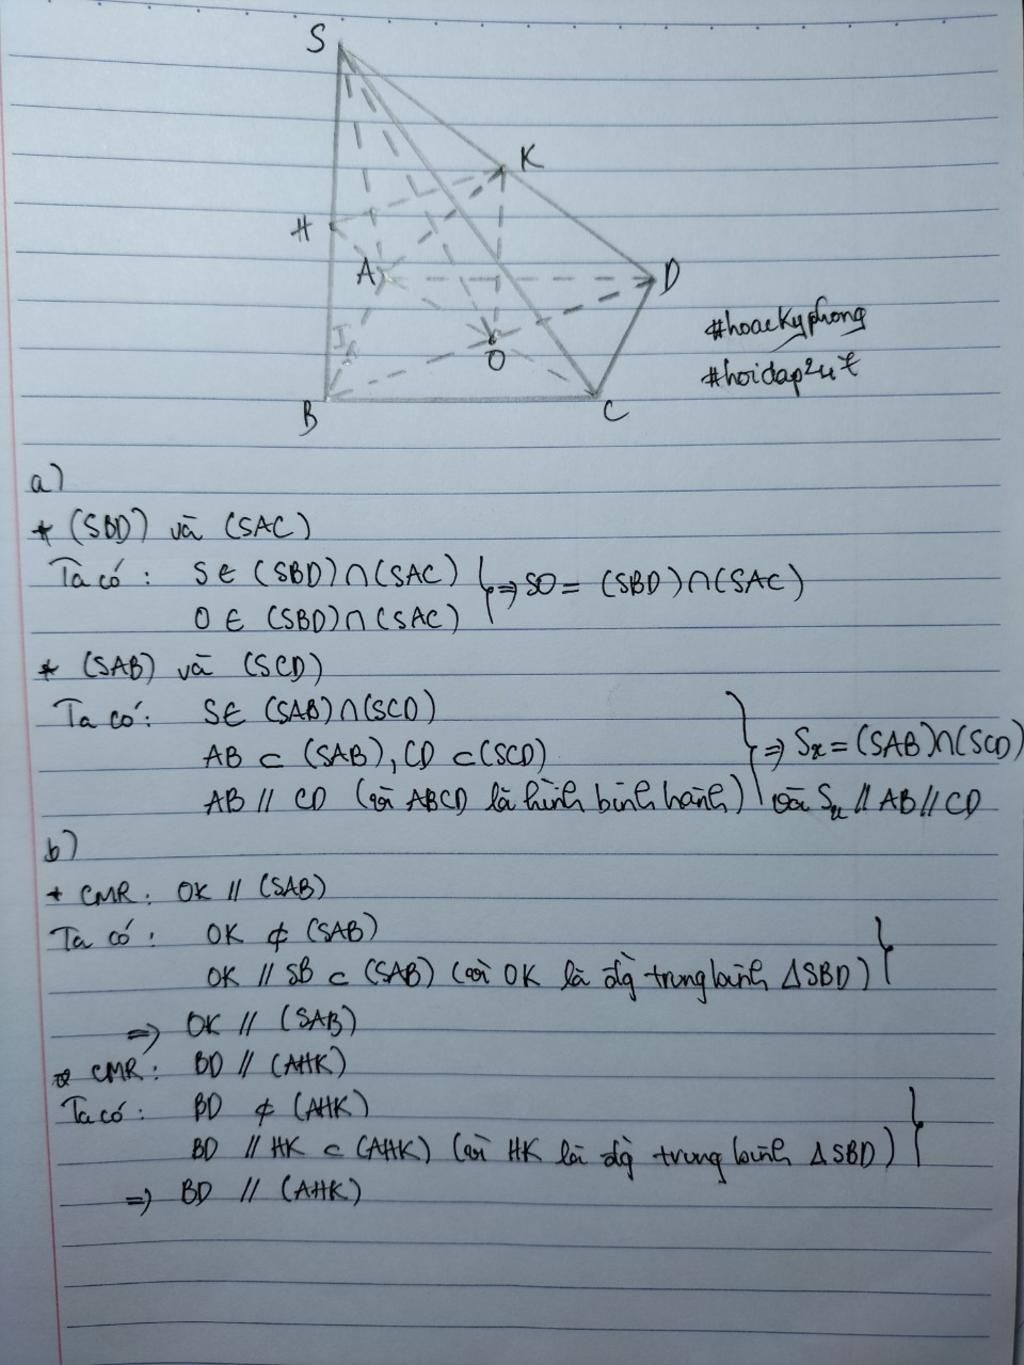 S
K
H
A
D
I
O
B
C
#hoaekyphong
#hoidap247
a)
* (SBD) và (SAC)
Ta có: S ∈ (SBD)∩(SAC)
O ∈ (SBD)∩(SAC)
⇒ SO = (SBD)∩(SAC)
* (SAB) và (SCD)
Ta có: S ∈ (SAB)∩(SCD)
AB ⊂ (SAB), CD ⊂ (SCD)
AB // CD (vì ABCD là hình bình hành)
⇒ Sx = (SAB)∩(SCD)
và Sx // AB // CD
b)
* CMR: OK // (SAB)
Ta có: OK ⊄ (SAB)
OK // SB ⊂ (SAB) (vì OK là đg trung bình ΔSBD)
⇒ OK // (SAB)
* CMR: BD // (AHK)
Ta có: BD ⊄ (AHK)
BD // HK ⊂ (AHK) (vì HK là đg trung bình ΔSBD)
⇒ BD // (AHK)